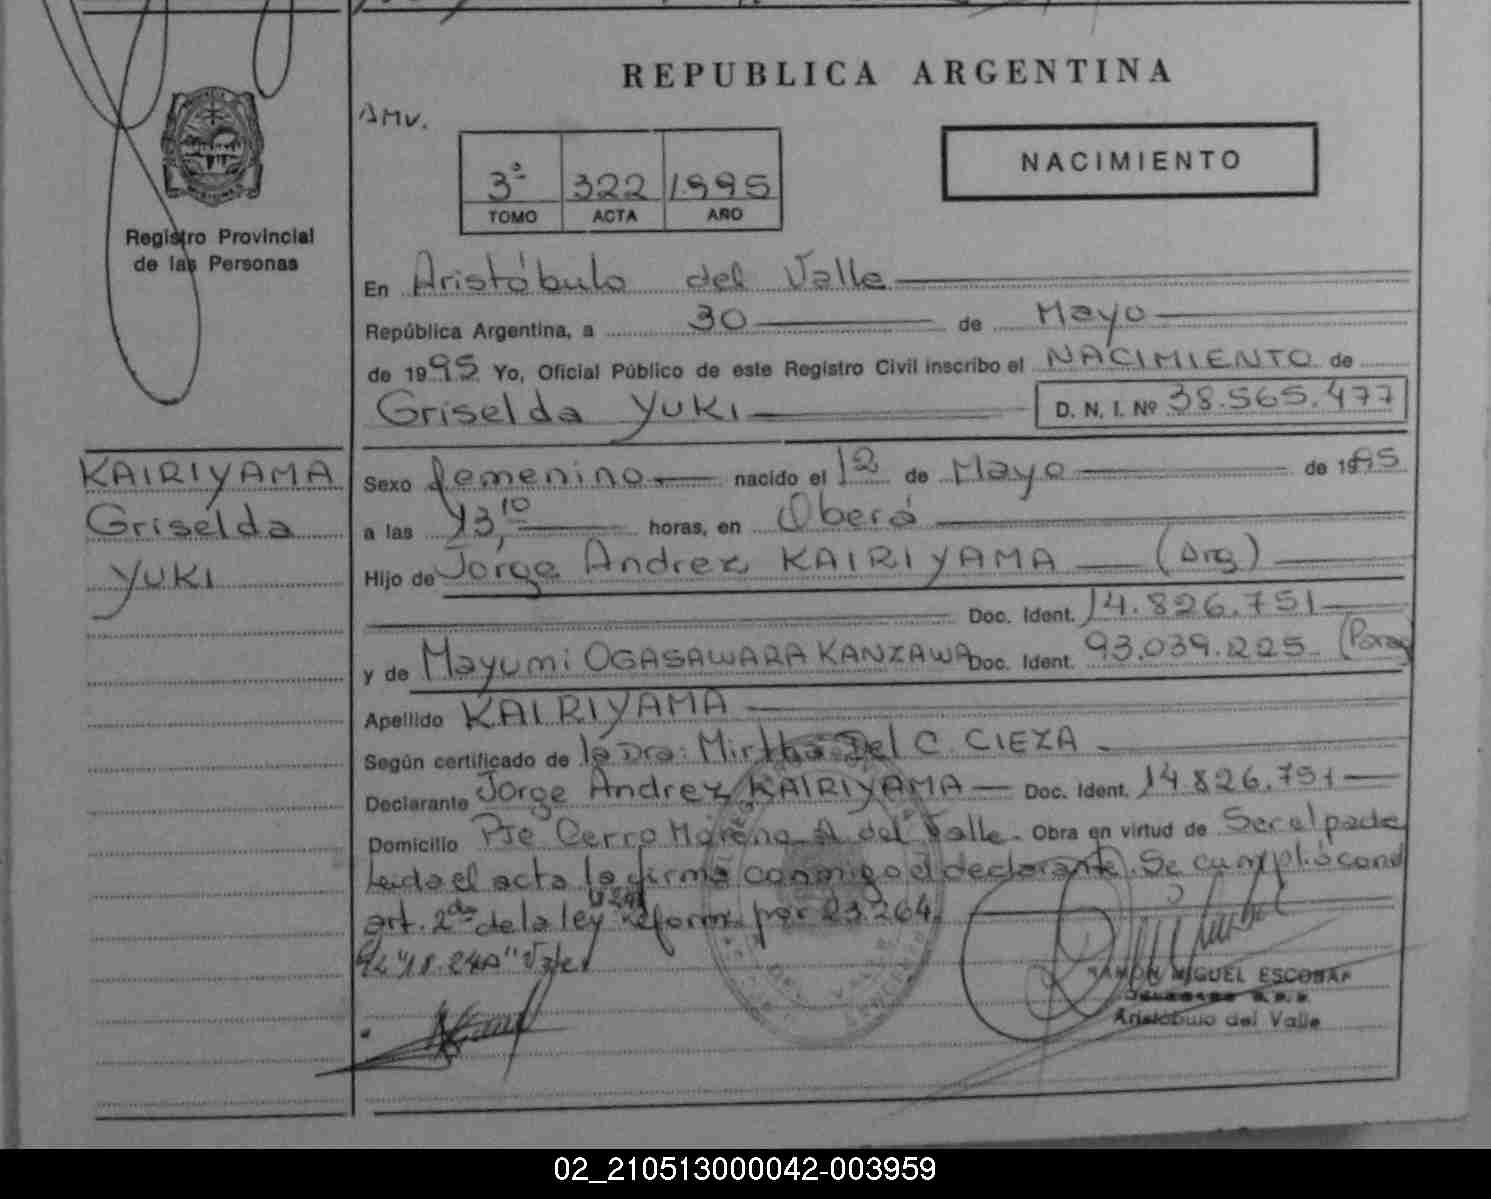 REPUBLICA ARGENTINA
AMV.
3ª 322 1995
TOMO ACTA AÑO
NACIMIENTO
Registro Provincial
de las Personas
En Aristóbulo del Valle
República Argentina, a 30 de Mayo
de 1995 Yo, Oficial Público de este Registro Civil inscribo el NACIMIENTO de
Griselda YUKI D. N. I. Nº 38.565.477
KAIRIYAMA
Griselda
YUKI
Sexo femenino nacido el 12 de Mayo de 1995
a las 13,10 horas, en Oberá
Hijo de Jorge Andrez KAIRIYAMA (Arg)
Doc. Ident. 14.826.751
y de Mayumi OGASAWARA KANZAWA Doc. Ident. 93.039.225 (Parag
Apellido KAIRIYAMA
Según certificado de la Dra: Mirtha Del C. CIEZA
Declarante Jorge Andrez KAIRIYAMA Doc. Ident. 14.826.751
Domicilio Pje Cerro Moreno A. del Valle. Obra en virtud de Ser el padre
Leida el acta la firma conmigo el declarante. Se cumplió con el
art. 2do de la ley Reform. por 23.264.
RAMON MIGUEL ESCOBAR
Aristóbulo del Valle
02_210513000042-003959